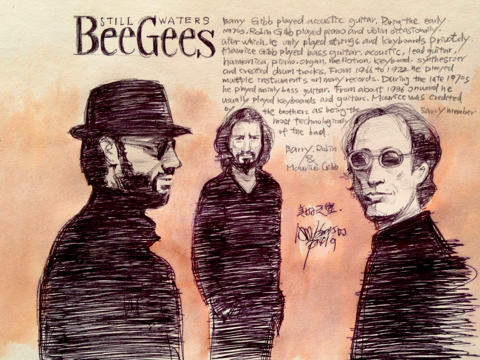 STILL WATERS
BeeGees
Barry Gibb played acoustic guitar. During the early
Robin Gibb played piano and violin occasionally.
after which, he only played strings and keyboards privately.
Maurice Gibb played bass guitar, acoustic, lead guitar,
harmonica, piano, organ, mellotron, keyboard, synthesizer
and created drum tracks. From 1966 to 1972 he played
multiple instruments on many records. During the late 1970s
he played mainly bass guitar. From about 1986 onward he
usually played keyboards and guitars. Maurice was credited
by the brothers as being the
member
most technologically
of the band.
Barry, Robin
&
Maurice Gibb